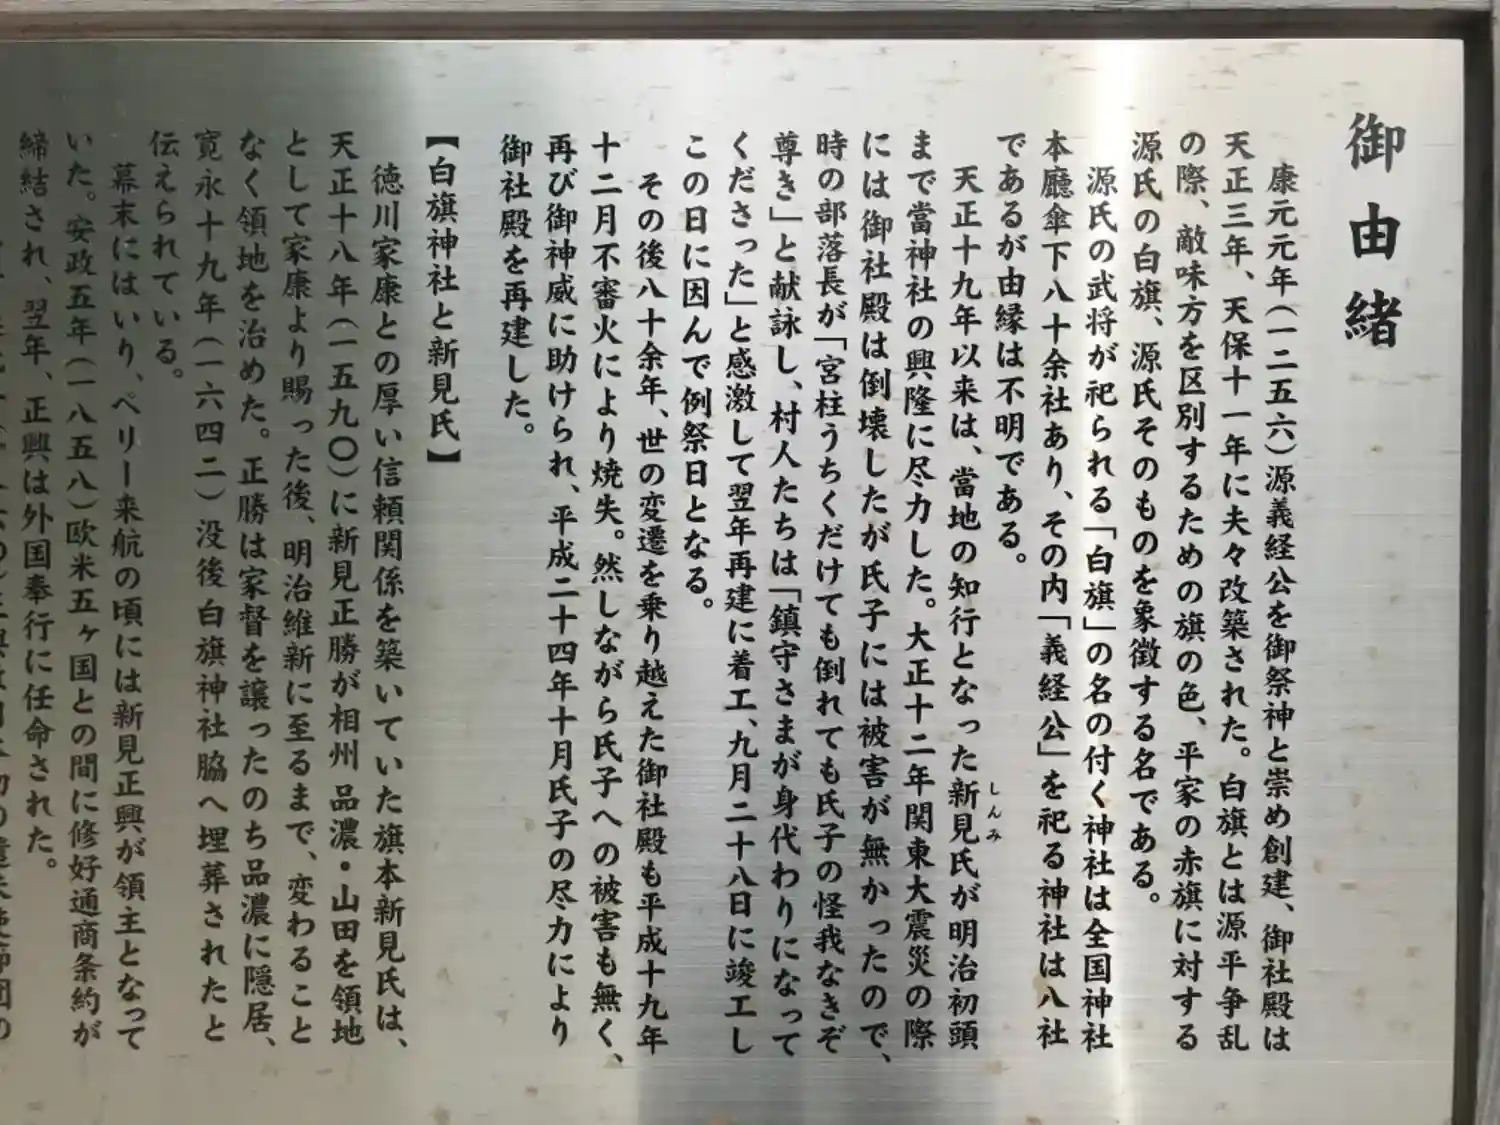 御由緒
康元元年（一二五六）源義経公を御祭神と崇め創建、御社殿は
天正三年、天保十一年に夫々改築された。白旗とは源平争乱
の際、敵味方を区別するための旗の色、平家の赤旗に対する
源氏の白旗、源氏そのものを象徴する名である。
源氏の武将が祀られる「白旗」の名の付く神社は全国神社
本廳傘下八十余社あり、その内「義経公」を祀る神社は八社
であるが由縁は不明である。
天正十九年以来は、當地の知行となった新見氏が明治初頭
しんみ
まで當神社の興隆に尽力した。大正十二年関東大震災の際
には御社殿は倒壊したが氏子には被害が無かったので、
時の部落長が「宮柱うちくだけても倒れても氏子の怪我なきぞ
尊き」と献詠し、村人たちは「鎮守さまが身代わりになって
くださった」と感激して翌年再建に着工、九月二十八日に竣工し
この日に因んで例祭日となる。
その後八十余年、世の変遷を乗り越えた御社殿も平成十九年
十二月不審火により焼失。然しながら氏子への被害も無く、
再び御神威に助けられ、平成二十四年十月氏子の尽力により
御社殿を再建した。
【白旗神社と新見氏】
徳川家康との厚い信頼関係を築いていた旗本新見氏は、
天正十八年（一五九〇）に新見正勝が相州品濃・山田を領地
として家康より賜った後、明治維新に至るまで、変わること
なく領地を治めた。正勝は家督を譲ったのち品濃に隠居、
寛永十九年（一六四二）没後白旗神社脇へ埋葬されたと
伝えられている。
幕末にはいり、ペリー来航の頃には新見正興が領主となって
いた。安政五年（一八五八）欧米五ヶ国との間に修好通商条約が
締結され、翌年、正興は外国奉行に任命された。